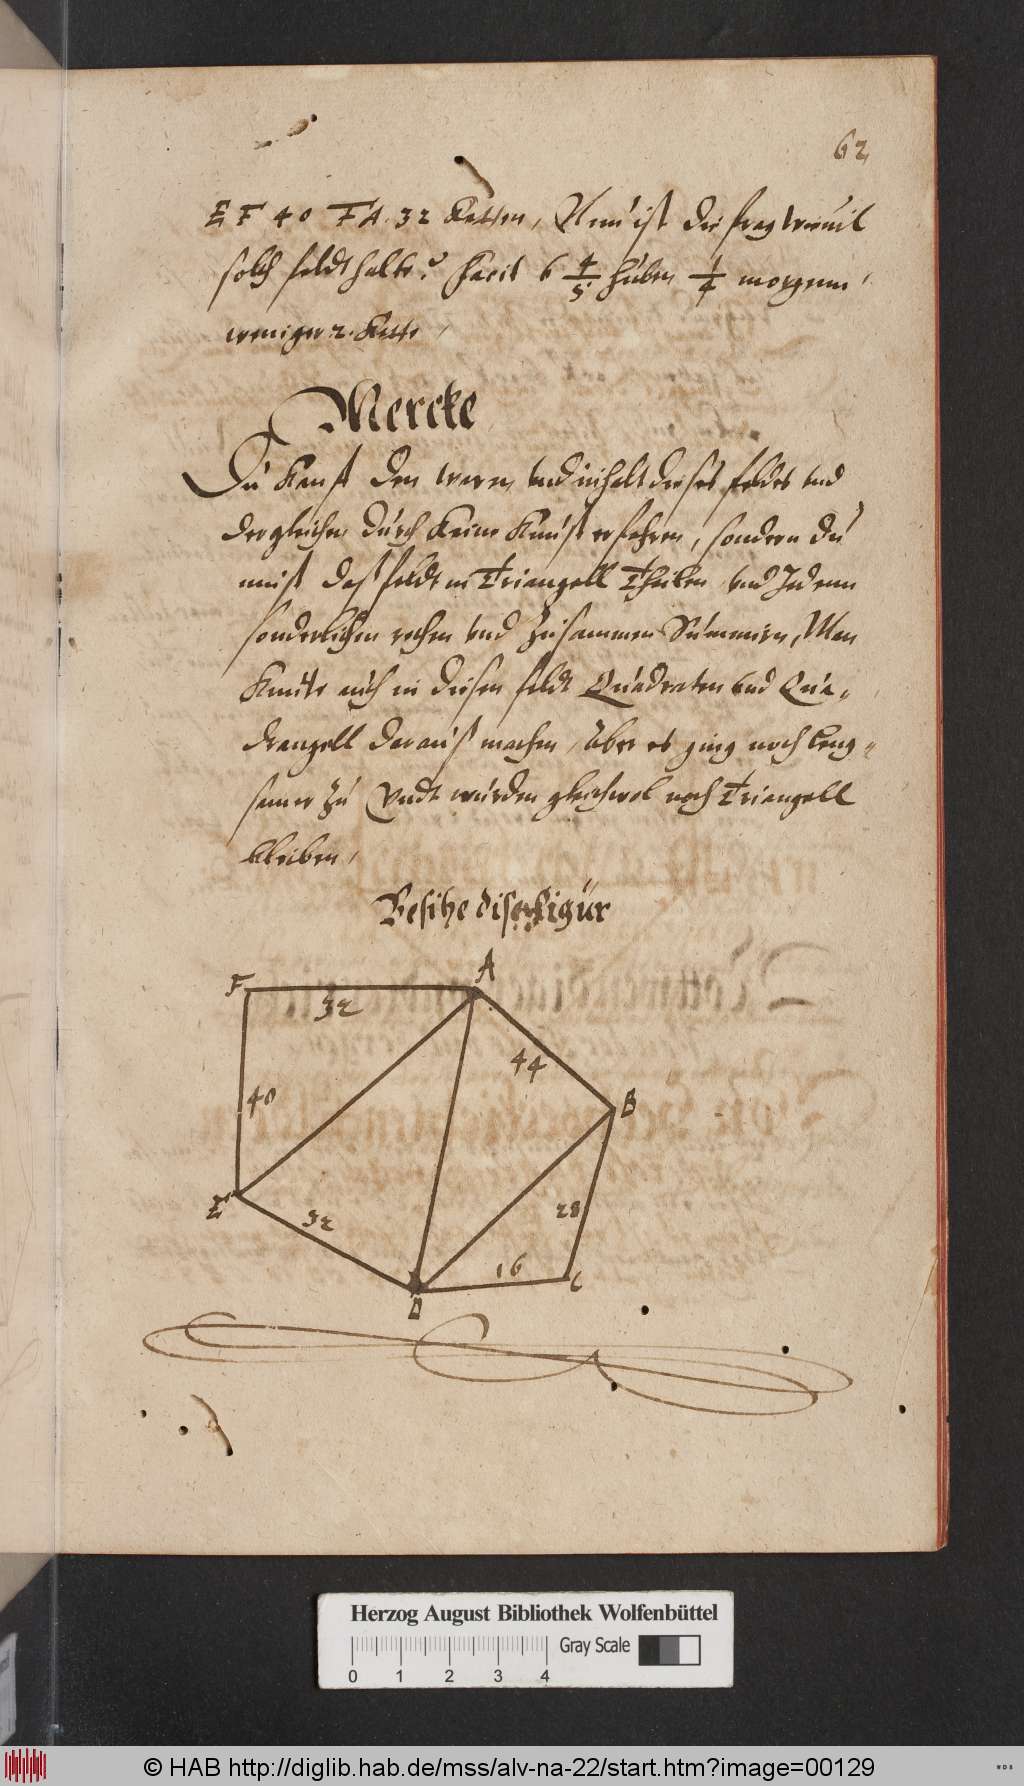 62
E F 40 F A. 32 Ketten, Nun ist die frag wieuil
solch feldt halte? facit 6 4/5 huben 1/4 morgenn,
weniger 2. Kette,
Mercke
Du kanst den waren vnd inhalt dieses feldes vnd
dergleichen durch keine Kunst erfahren, sondern du
must das feldt in Triangell Theilen vnd Jedenn
sonderlichen rechen vnd zusammen Summirn, Man
kunte auch in diesen feldt Quadraten vnd Qua-
drangell daraus machen, Aber es ging noch leng-
samer zu Vndt wurden gleichwol noch Triangell
bleiben,
Besihe dise figur
A
F
32
44
40
B
E
32
28
16
C
D
Herzog August Bibliothek Wolfenbüttel
Gray Scale
0 1 2 3 4
© HAB http://diglib.hab.de/mss/alv-na-22/start.htm?image=00129